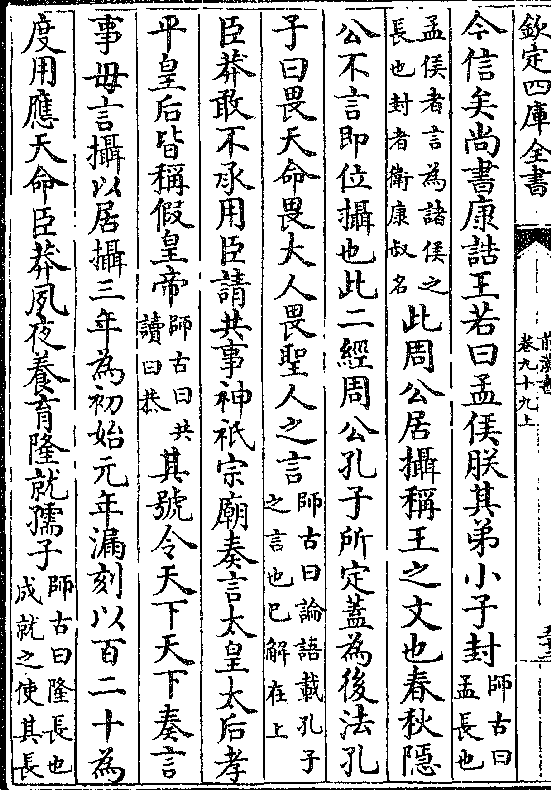 欽定四庫全書
前漢書
卷九十九上
今信矣尚書康誥王若曰孟侯朕其弟小子封師古曰孟長也
孟侯者言為諸侯之長也封者衛康叔名此周公居攝稱王之文也春秋隱
公不言即位攝也此二經周公孔子所定蓋為後法孔
子曰畏天命畏大人畏聖人之言師古曰論語載孔子之言也已解在上
臣莽敢不承用臣請共事神祇宗廟奏言太皇太后孝
平皇后皆稱假皇帝師古曰共讀曰恭其號令天下天下奏言
事毋言攝以居攝三年為初始元年漏刻以百二十為
度用應天命臣莽夙夜養育隆就孺子師古曰隆長也成就之使其長